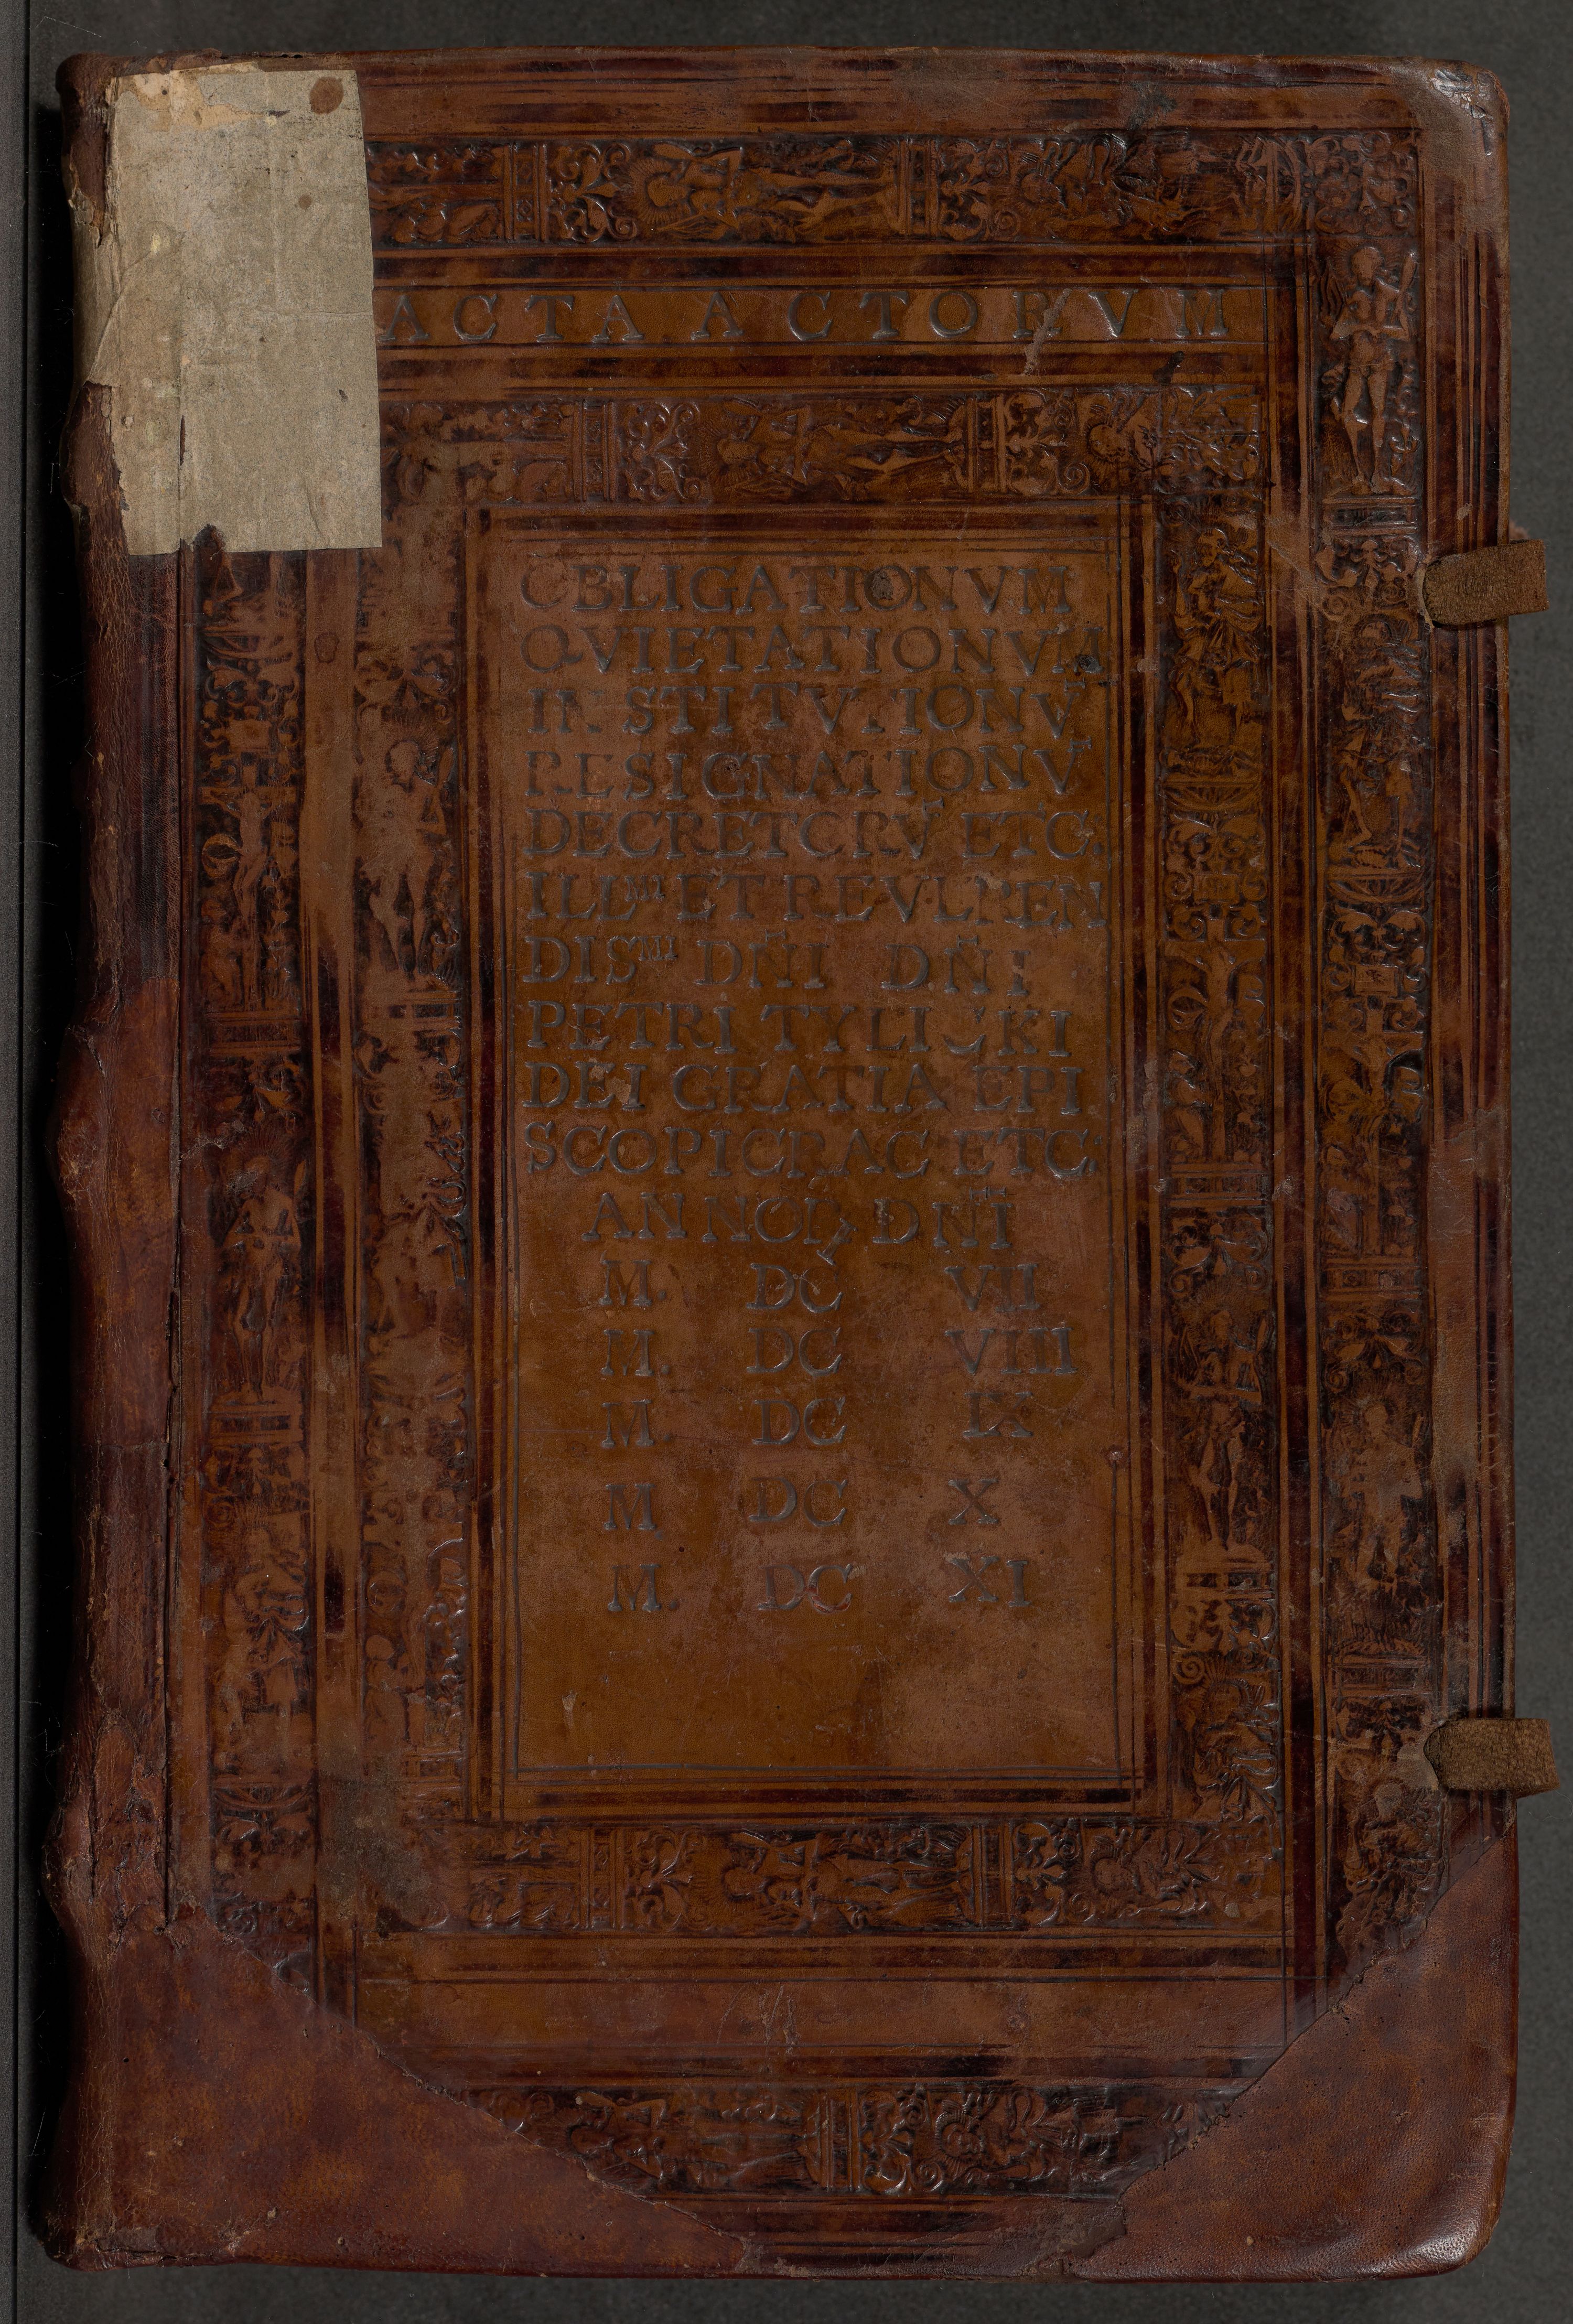 ACTA ACTORVM
OBLIGATIONVM
QVIETATIONVM
INSTITVTIONV̄
RESIGNATIONV̄
DECRETORV̄ ETC:
ILLᴹᴵ ET REVEREN
DISᴹᴵ DÑI DÑI
PETRI TYLICKI
DEI GRATIA EPI
SCOPI CRAC ETC:
ANNOꝜ DÑI
M. DC VII
M. DC VIII
M. DC IX
M DC X
M. DC XI